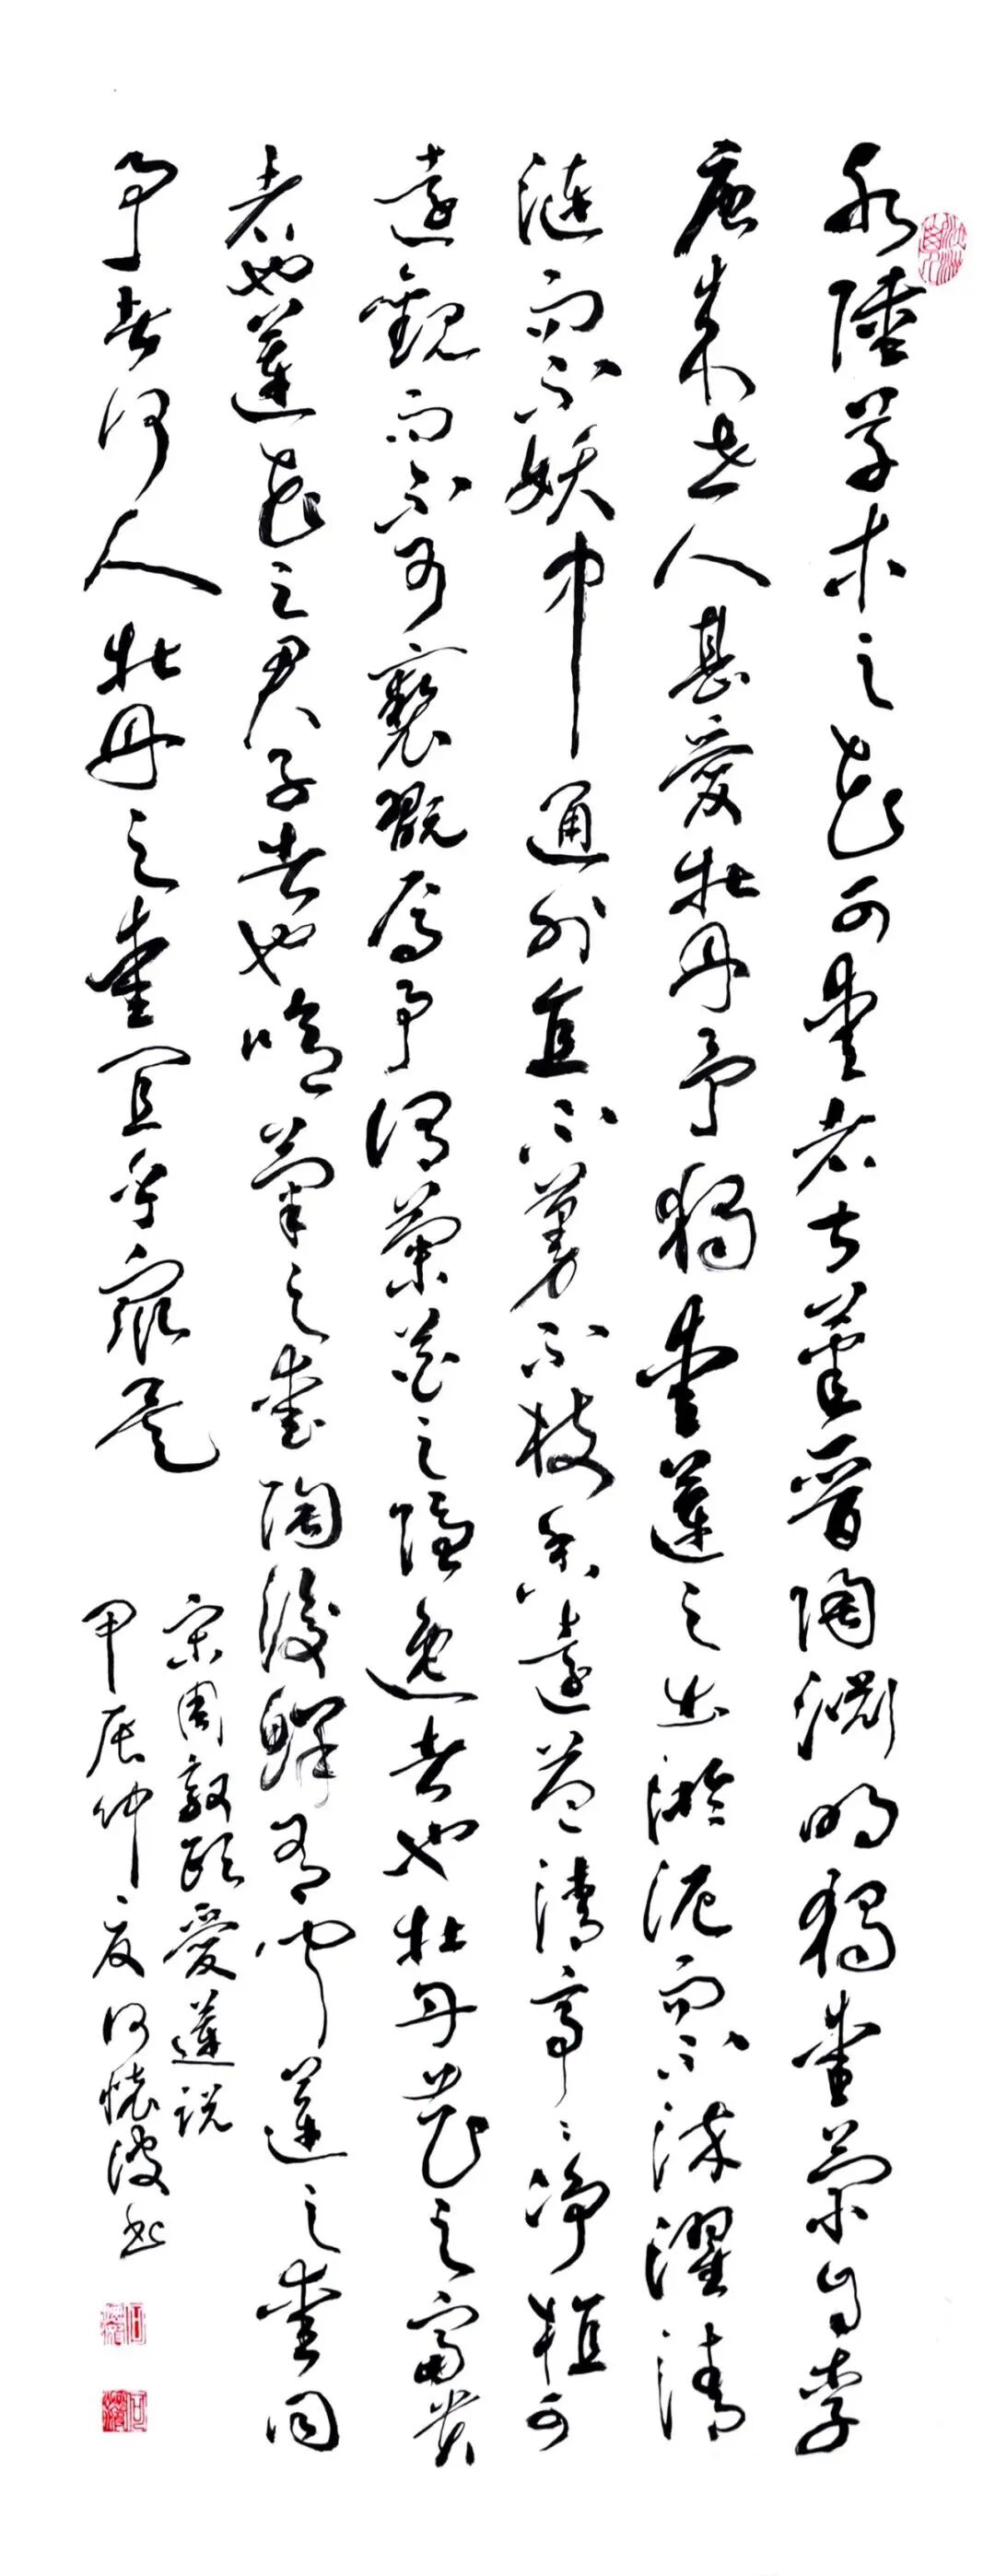 水陸草木之花可愛者甚蕃晉陶淵明獨愛菊自李
唐來世人甚愛牡丹予獨愛蓮之出淤泥而不染濯清
漣而不妖中通外直不蔓不枝香遠益清亭〻净植可
遠觀而不可褻翫焉予謂菊花之隱逸者也牡丹花之富貴
者也蓮花之君子者也噫菊之愛陶後鮮有聞蓮之愛同
予者何人牡丹之愛宜乎衆矣
宋周敦頤愛蓮説
甲辰仲夏何懷波書